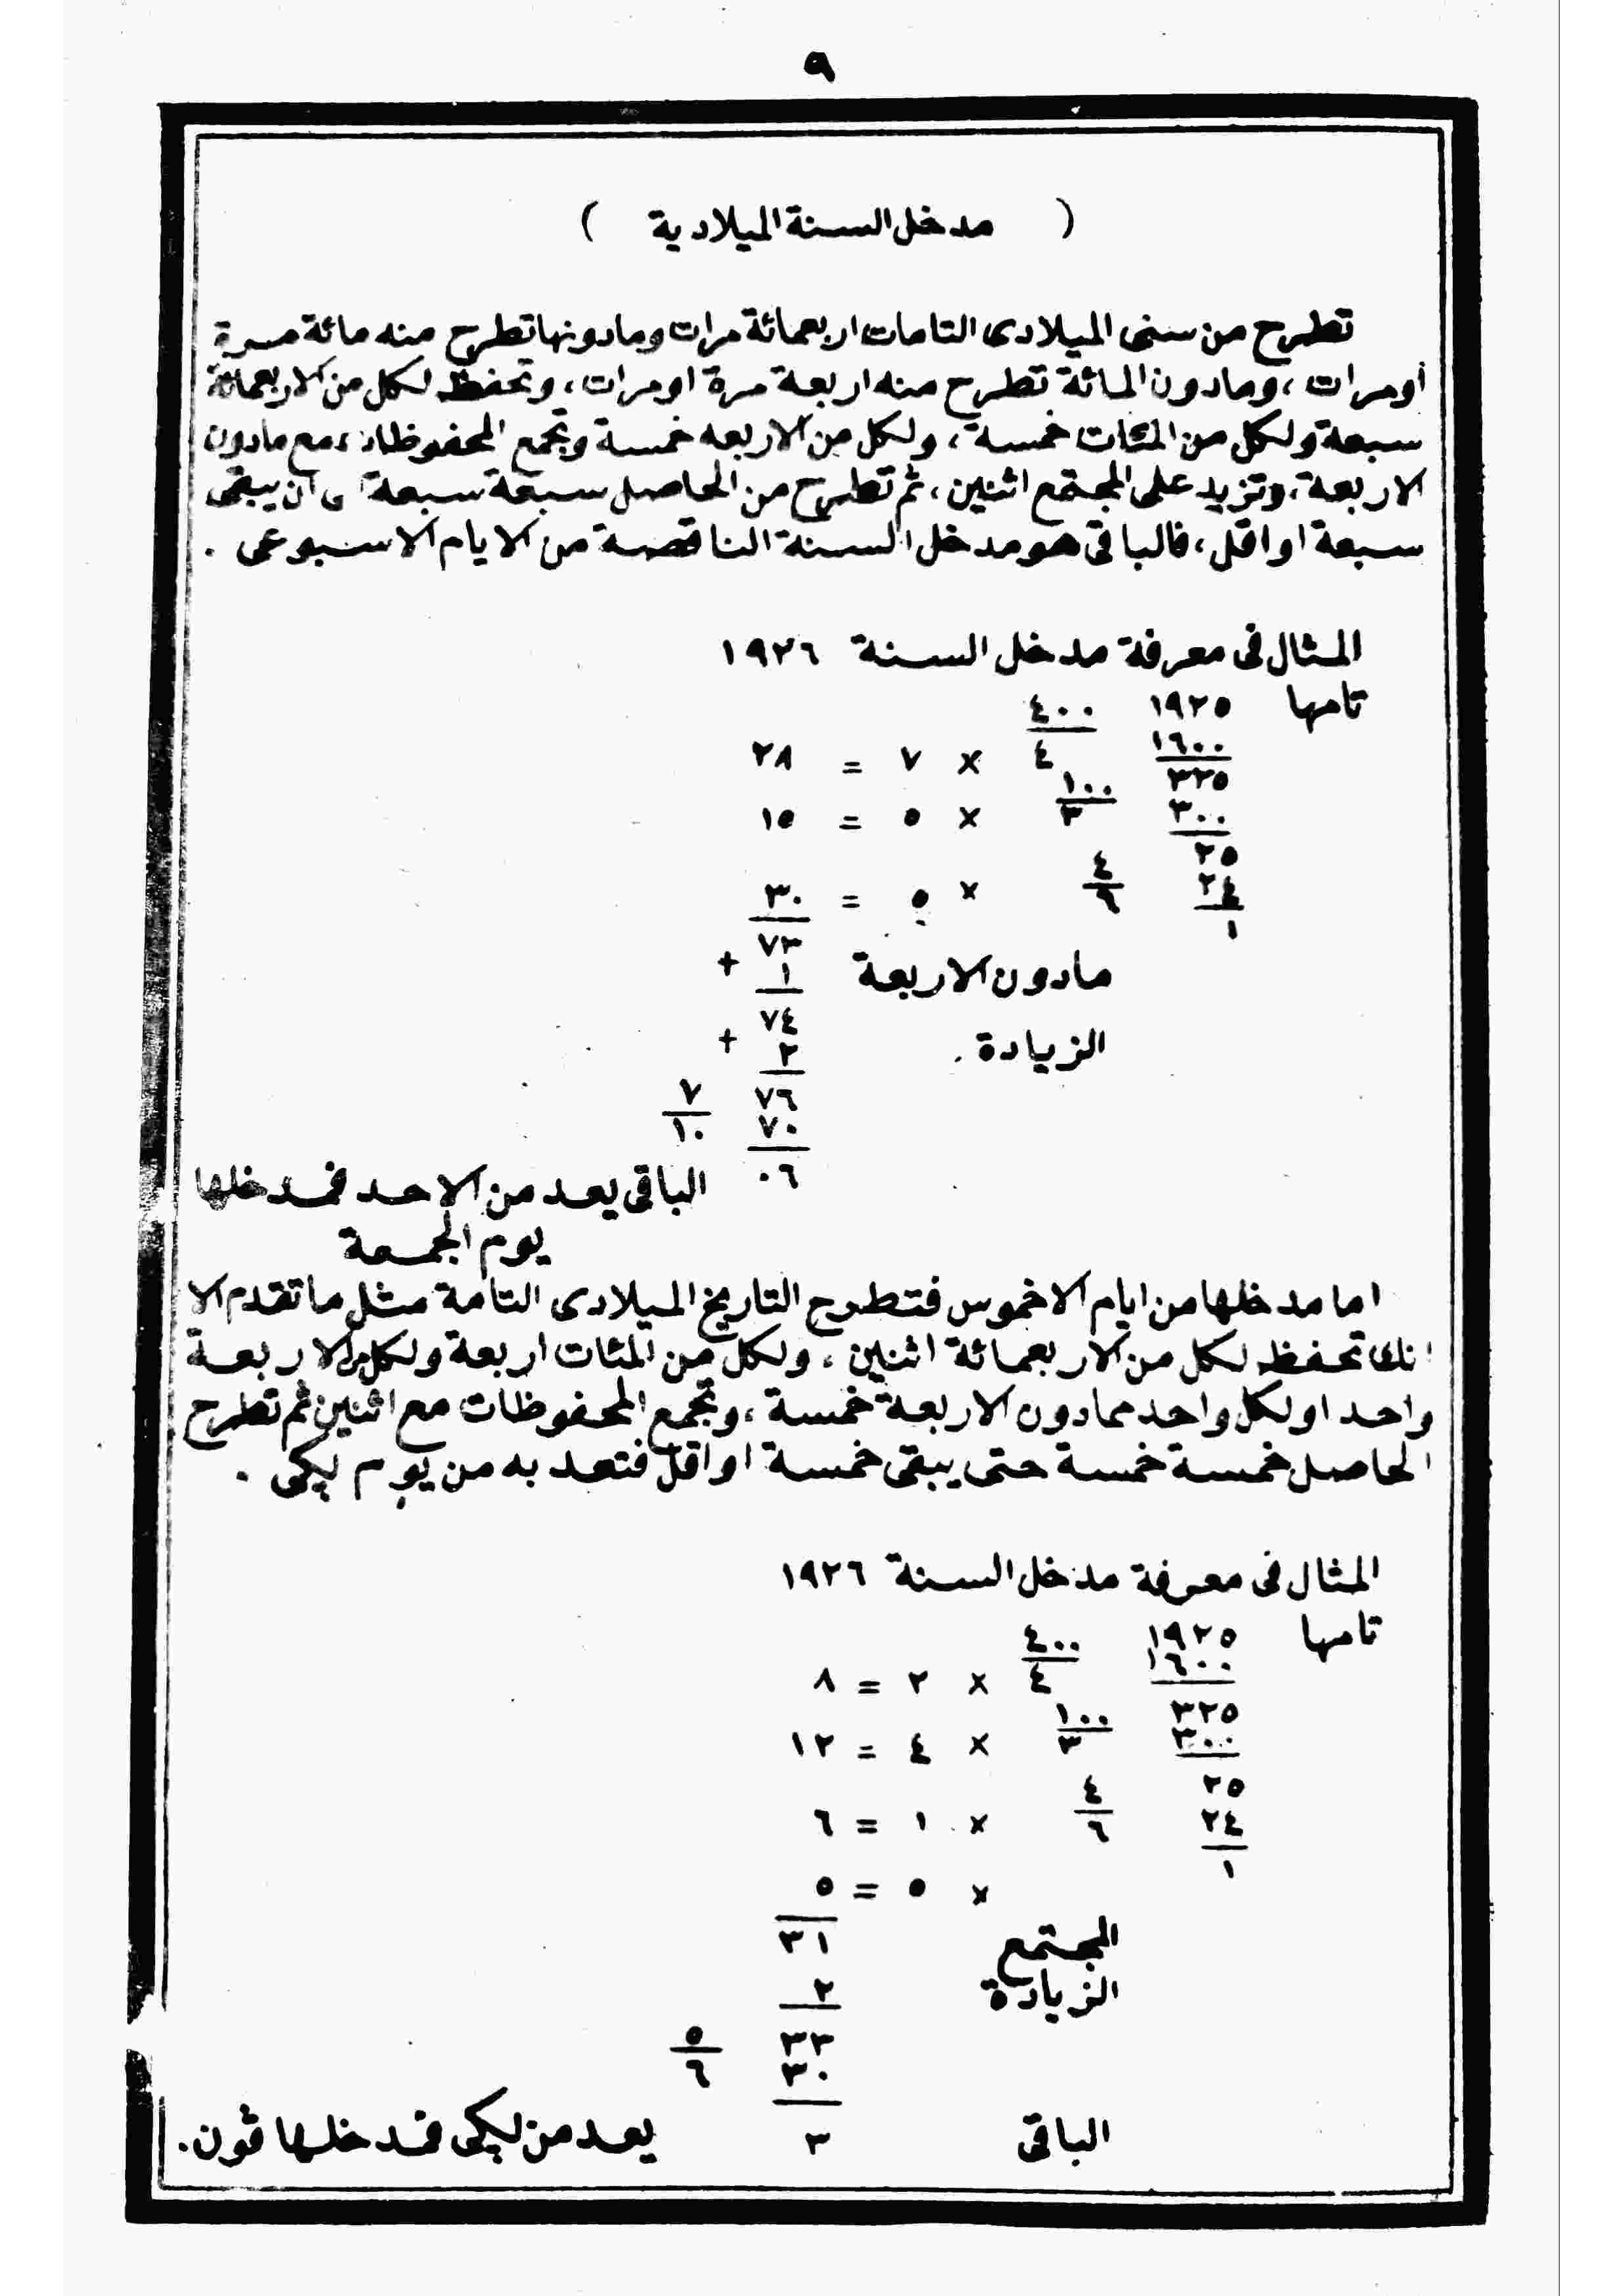 ٩
( مدخل السنة الميلادية )
تطرح من سنى الميلادى التامات اربعمائة مرات ومادونها تطرح منه مائة مرة
أومرات ، ومادون المائة تطرح منه اربعة مرة اومرات ، وتحفظ لكل من الاربعمائة
سبعة ولكل من المئات خمسة ، ولكل من الاربعه خمسة وتجمع المحفوظات ، مع مادون
الاربعة ، وتزيد على المجتمع اثنين ، ثم تطرح من الحاصل سبعة سبعة ان يبقى
سبعة اواقل ، فالباقى هو مدخل السنة الناقصة من الايام الاسبوعى .
المثال فى معرفة مدخل السنة ١٩٢٦
تامها ١٩٢٥ ٤٠٠
١٦٠٠ ٤ × ٧ = ٢٨
٣٢٥ ١٠٠
٣٠٠ ٣ × ٥ = ١٥
٢٥ ٤
٢٤ ٦ × ٥ = ٣٠
١ ٧٣
مادون الاربعة ١ +
٧٤
الزيادة ٢ +
٧٦ ٧
٧٠ ١٠
٠٦ الباقى يعد من الاحد فمدخلها
يوم الجمعة
اما مدخلها من ايام الاخموس فتطرح التاريخ الميلادى التامة مثل ما تقدم الا
انك تحفظ لكل من الاربعمائة اثنين ، ولكل من المئات اربعة ولكل من الاربعة
واحد اولكل واحد ممادون الاربعة خمسة ، وتجمع المحفوظات مع اثنين ثم تطرح
الحاصل خمسة خمسة حتى يبقى خمسة اواقل فتعد به من يوم ليكى .
المثال فى معرفة مدخل السنة ١٩٢٦
تامها ١٩٢٥ ٤٠٠
١٦٠٠ ٤ × ٢ = ٨
٣٢٥ ١٠٠
٣٠٠ ٣ × ٤ = ١٢
٢٥ ٤
٢٤ ٦ × ١ = ٦
١ × ٥ = ٥
المجتمع ٣١
الزيادة ٢
٣٣ ٥
٣٠ ٦
الباقى ٣ يعد من ليكى فمدخلها ڤون.